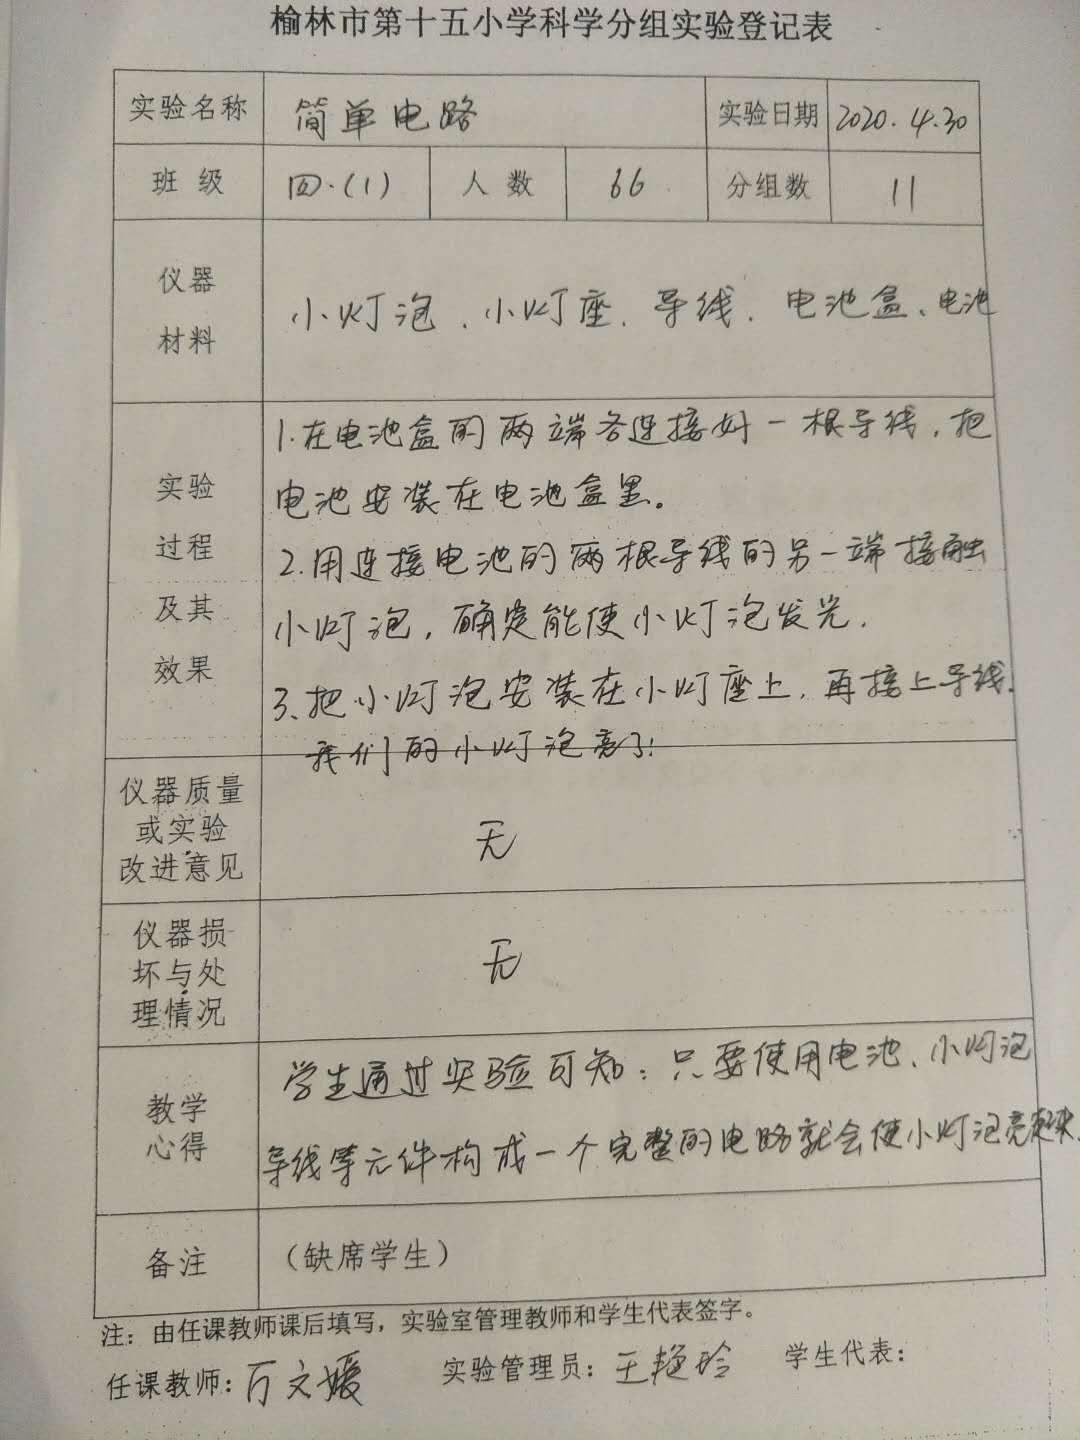 榆林市第十五小学科学分组实验登记表
实验名称 简单电路 实验日期 2020.4.30
班级 四.(1) 人数 66 分组数 11
仪器
材料
小灯泡、小灯座、导线、电池盒、电池
实验
过程
及其
效果
1.在电池盒的两端各连接好一根导线,把
电池安装在电池盒里。
2.用连接电池的两根导线的另一端接触
小灯泡,确定能使小灯泡发光.
3、把小灯泡安装在小灯座上,再接上导线.
我们的小灯泡亮了!
仪器质量
或实验
改进意见
无
仪器损
坏与处
理情况
无
教学
心得
学生通过实验可知:只要使用电池、小灯泡
导线等元件构成一个完整的电路就会使小灯泡亮起来.
备注 (缺席学生)
注:由任课教师课后填写,实验室管理教师和学生代表签字。
任课教师:万文媛 实验管理员:王艳玲 学生代表: